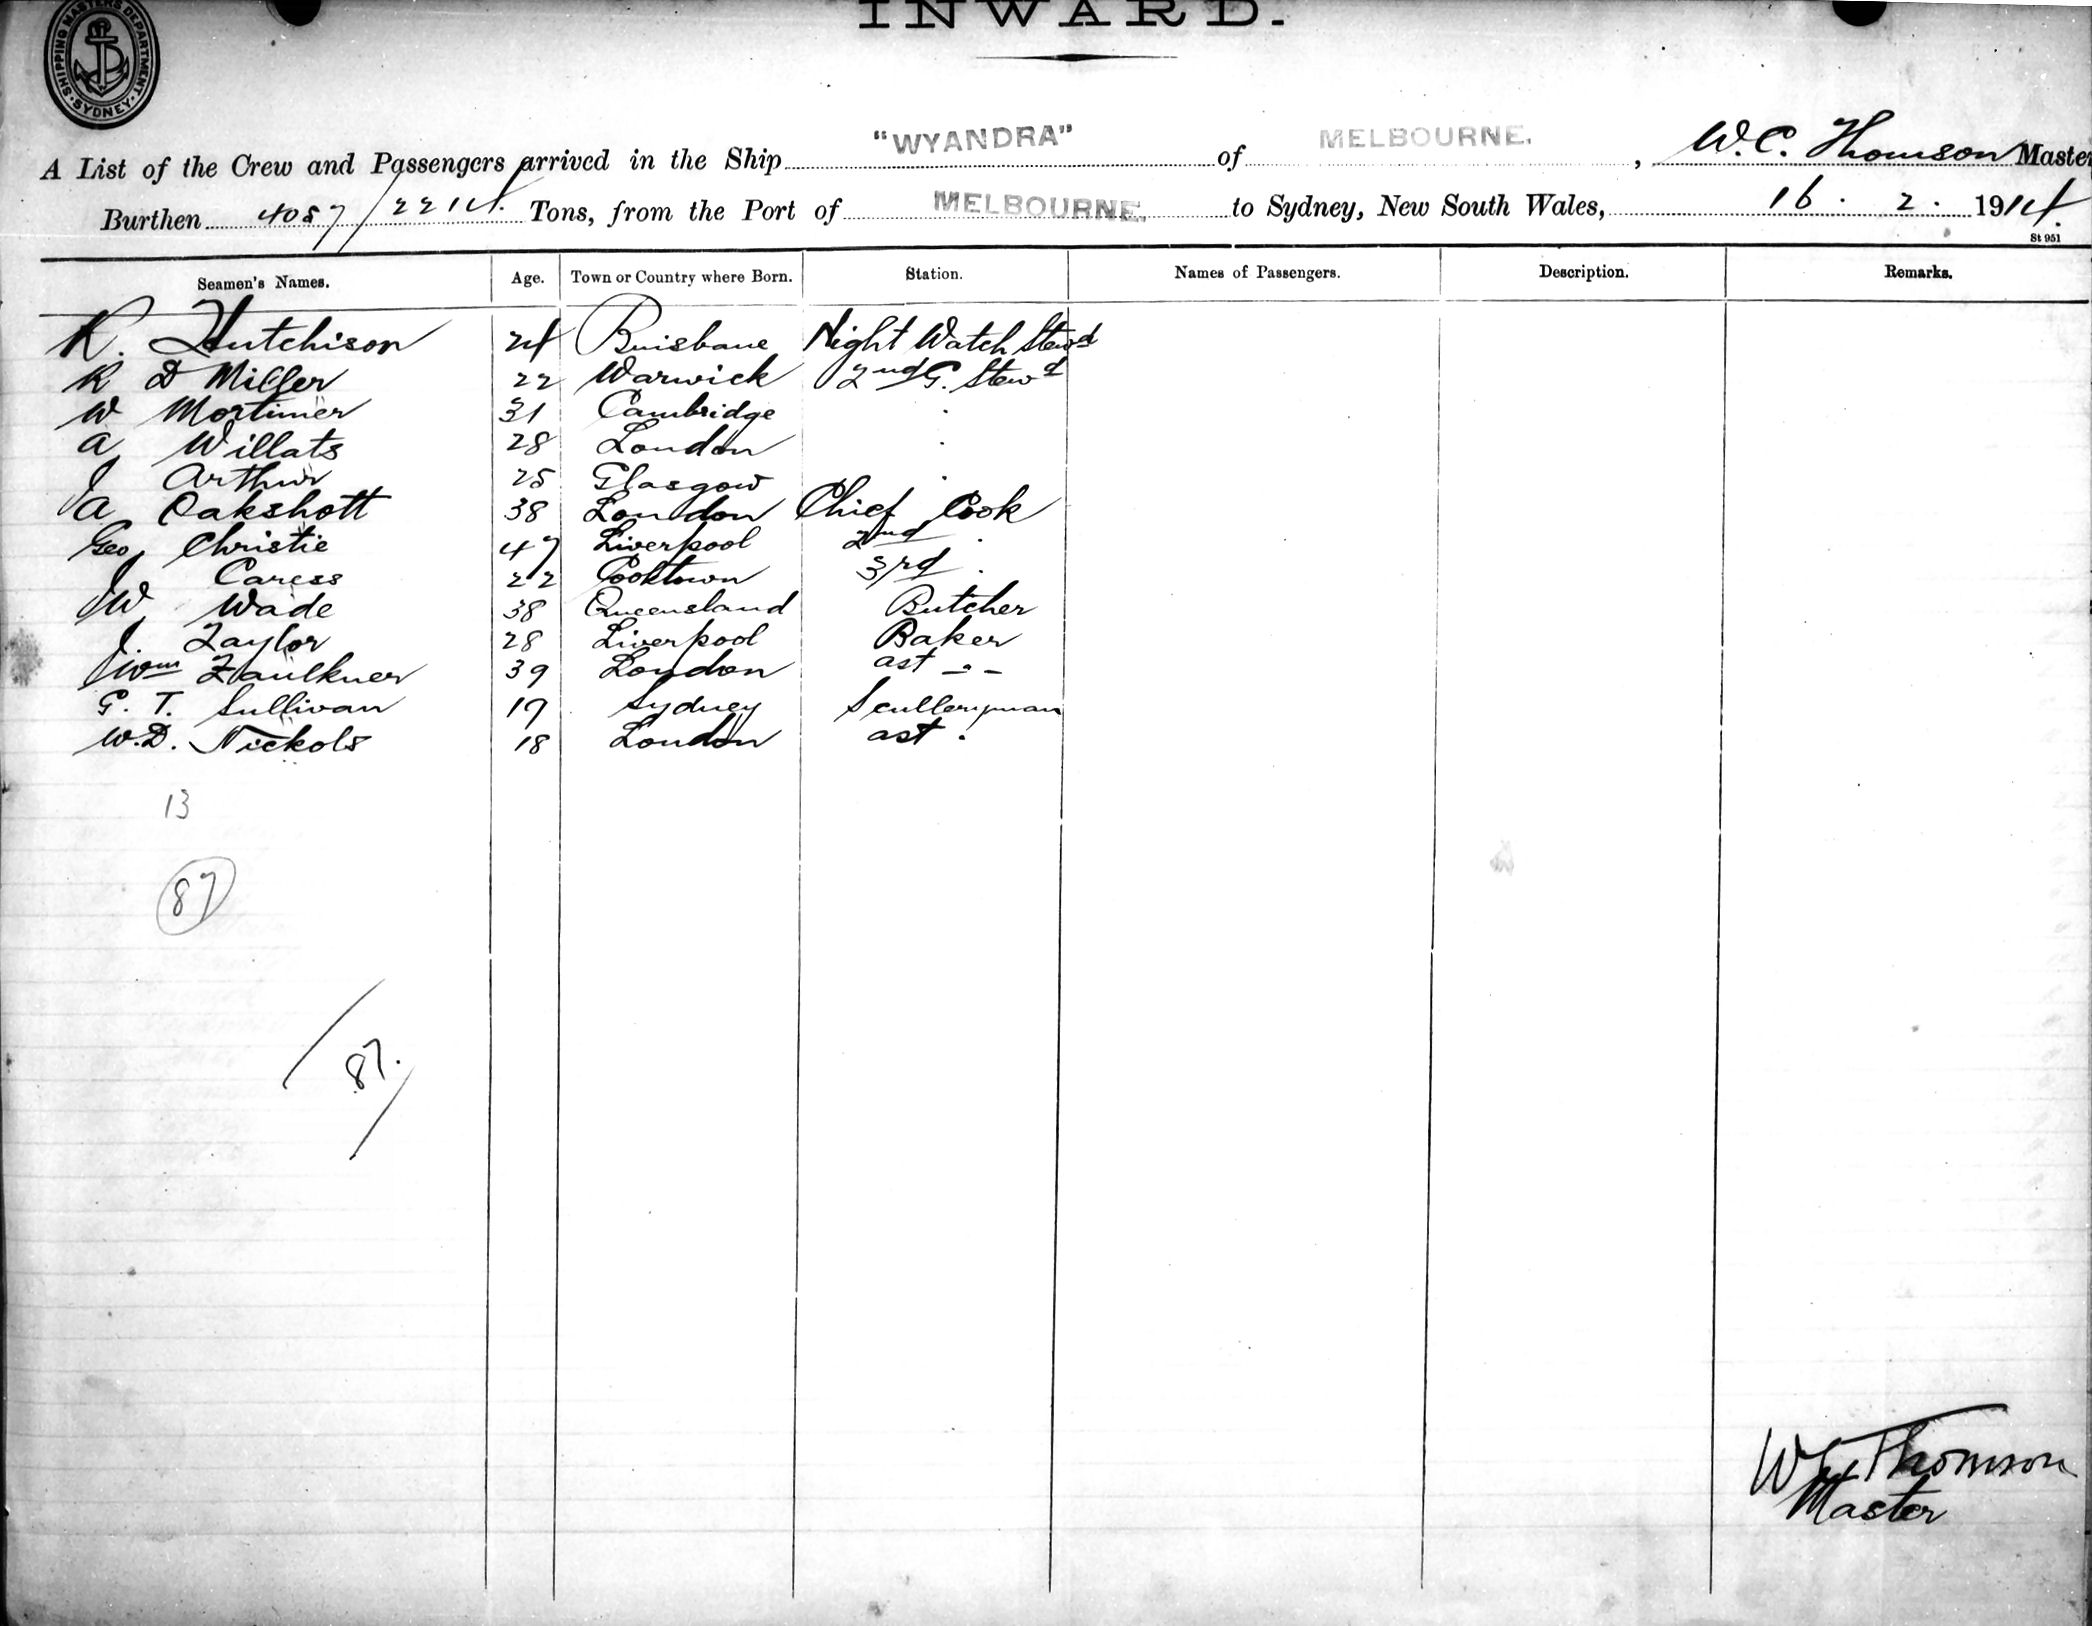 INWARD.
SHIPPING MASTERS DEPARTMENT · SYDNEY ·
A List of the Crew and Passengers arrived in the Ship "WYANDRA" of MELBOURNE. , W. C. Thomson Master
Burthen 4057/2214. Tons, from the Port of MELBOURNE. to Sydney, New South Wales, 16. 2. 1914.
St 951
Seamen's Names. Age. Town or Country where Born. Station. Names of Passengers. Description. Remarks.
R. Hutchison 24 Brisbane Night Watch Stewd
R D Miller 22 Warwick 2nd G. Stewd
W Mortimer 31 Cambridge
A Willats 28 London
J Arthur 25 Glasgow
A Oakshott 38 London Chief Cook
Geo Christie 47 Liverpool 2nd
J Caress 22 Cooktown 3rd
W Wade 38 Queensland Butcher
J. Taylor 28 Liverpool Baker
Wm Faulkner 39 London ast - " -
G. T. Sullivan 19 Sydney Sculleryman
W. D. Nickols 18 London ast .
13
87
87.
W C Thomson
Master